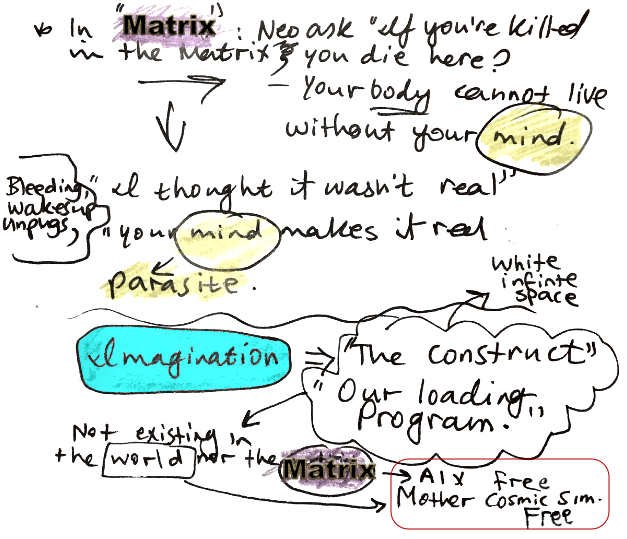 In "Matrix": Neo ask "If you're killed
in the Matrix, you die here?
- Your body cannot live
without your mind.
Bleeding,
wakes up
unplugs,
"I thought it wasn't real"
"your mind makes it real
parasite.
white
infinte
space
Imagination ⇒ "The construct"
"Our loading
Program."
Not existing in
the world nor the Matrix → AIx free
Mother Cosmic Sim.
Free